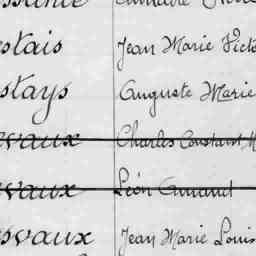 stais Jean Marie Victo
stays Auguste Marie
vaux Charles Constant M
vaux Léon Armand
svaux Jean Marie Louis